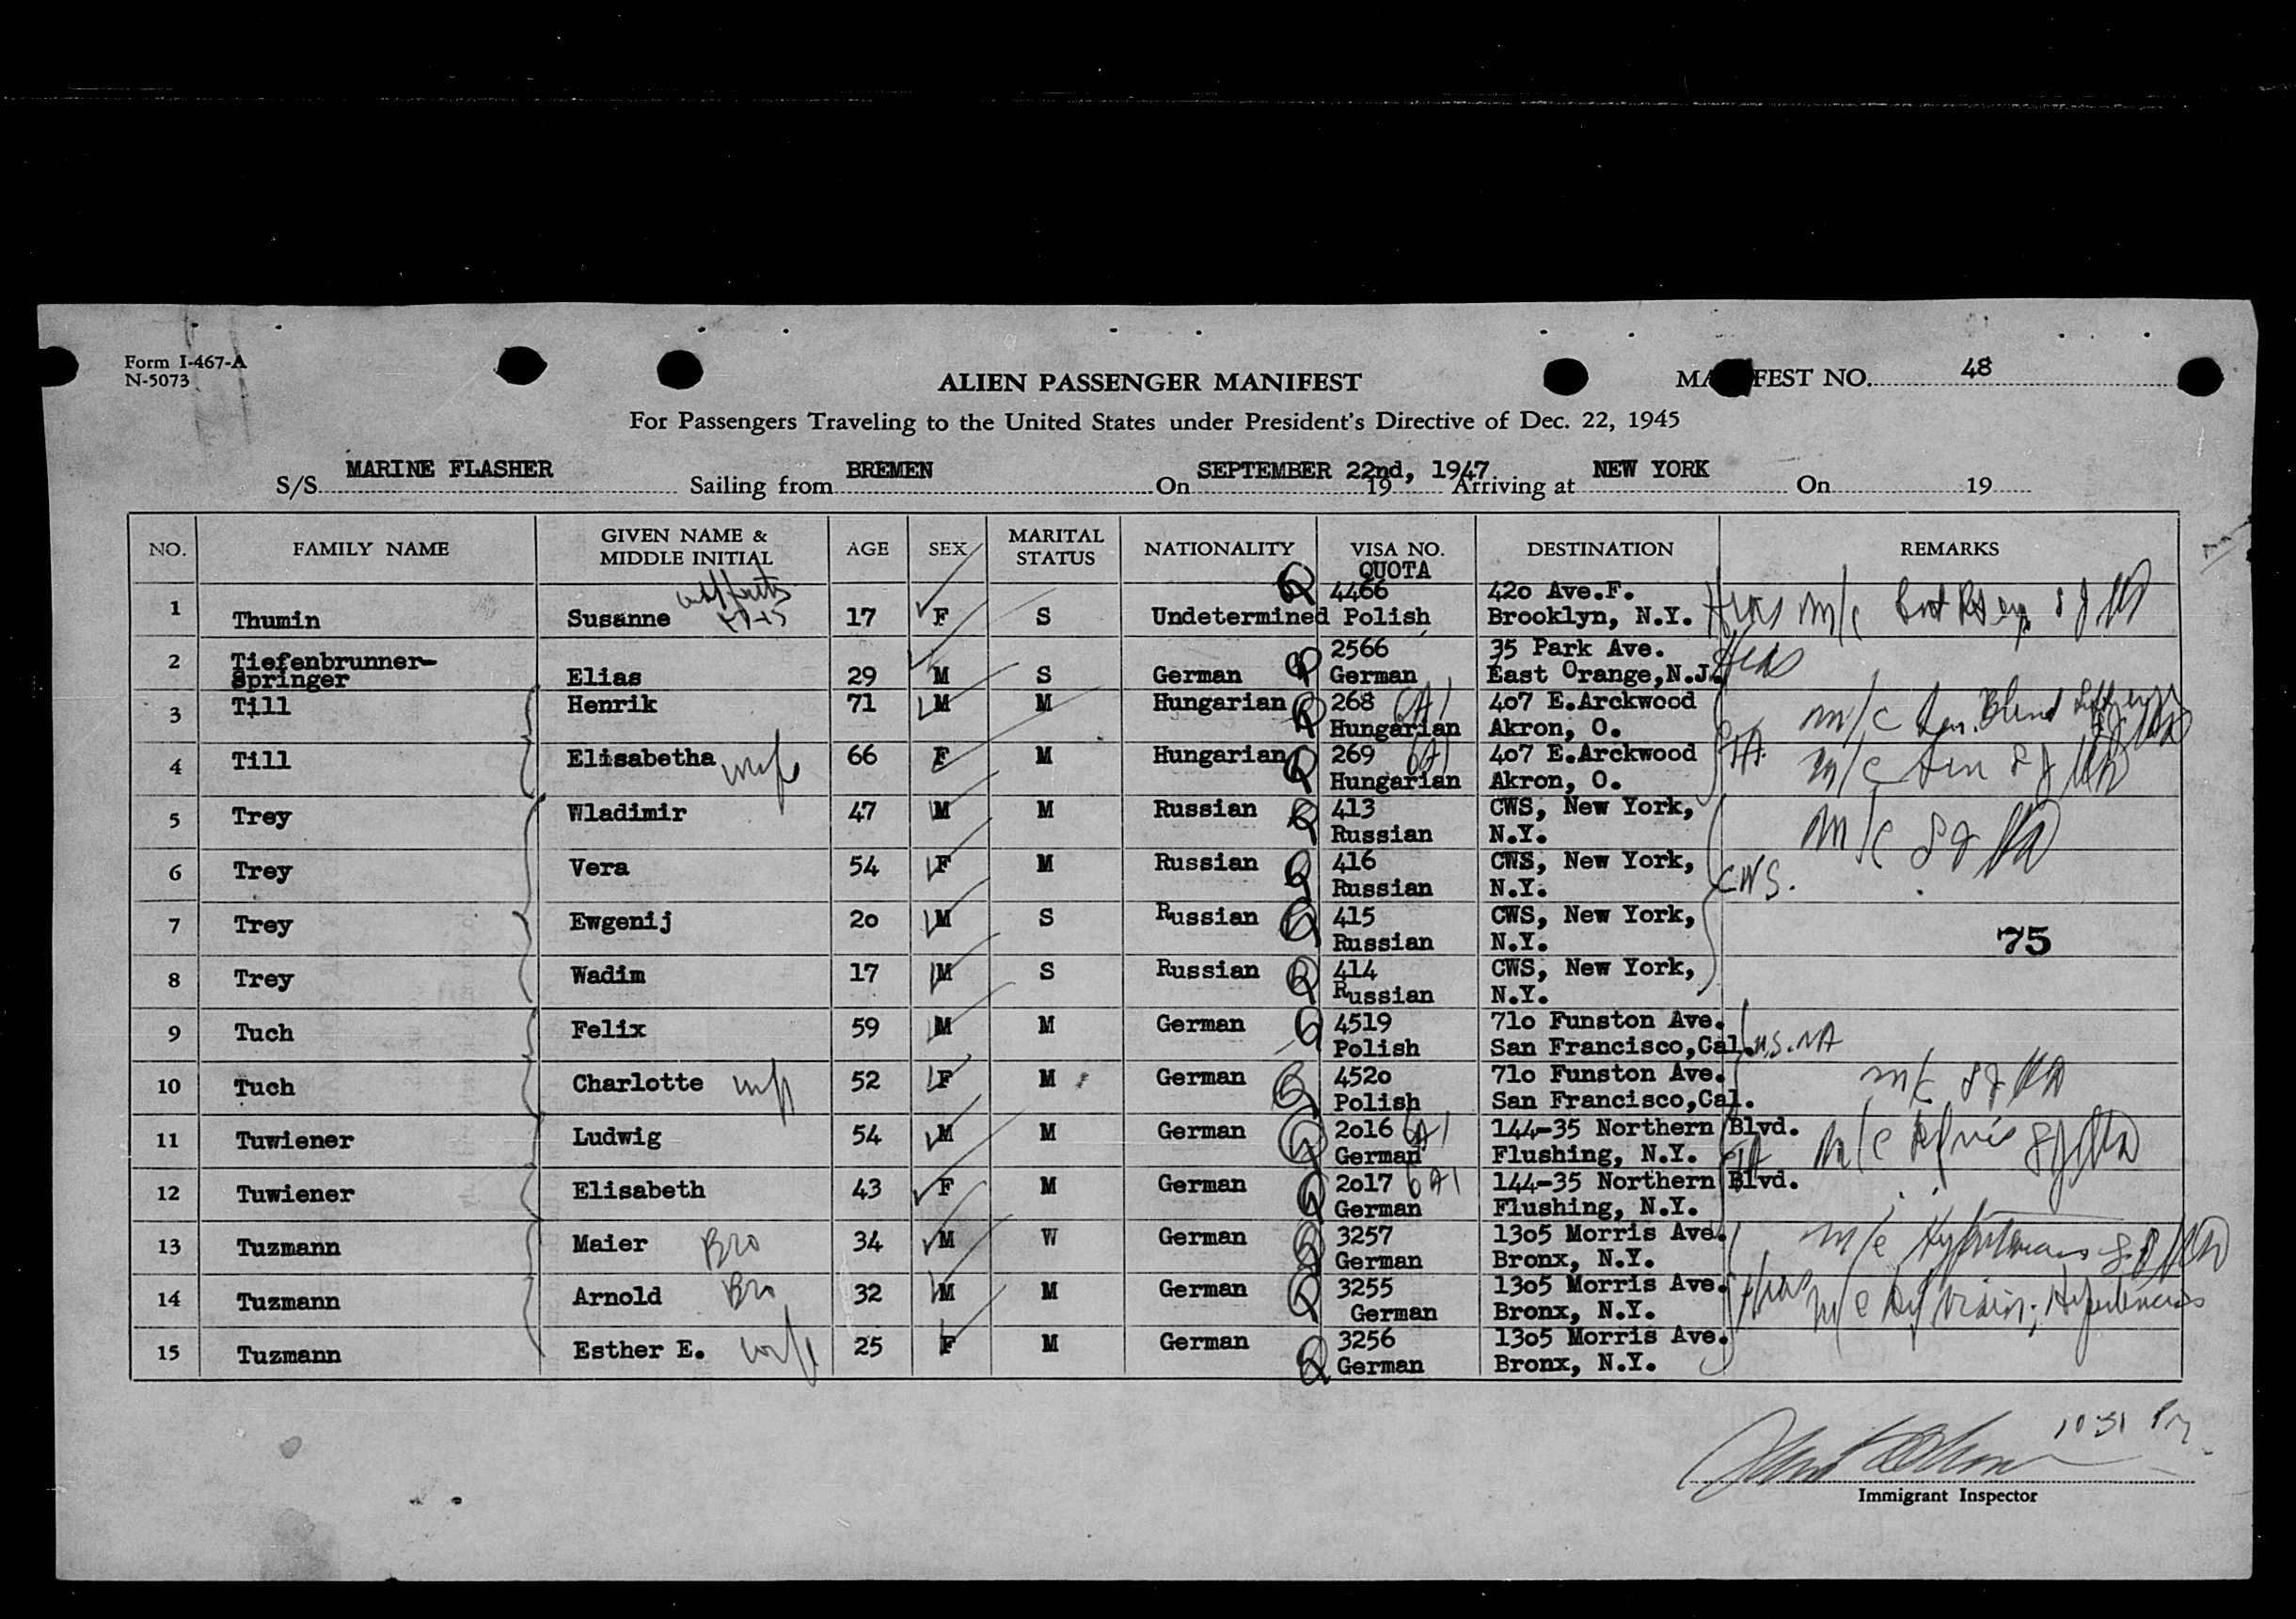 Form I-467-A
N-5073
ALIEN PASSENGER MANIFEST
MA FEST NO. 48
For Passengers Traveling to the United States under President's Directive of Dec. 22, 1945
S/S MARINE FLASHER Sailing from BREMEN On SEPTEMBER 22nd, 1947 19 Arriving at NEW YORK On 19
NO. FAMILY NAME GIVEN NAME & MIDDLE INITIAL AGE SEX MARITAL STATUS NATIONALITY VISA NO. QUOTA DESTINATION REMARKS
4466 420 Ave.F.
1 Thumin Susanne 17 F S Undetermined Polish Brooklyn, N.Y. Hias m/c
2 Tiefenbrunner- 2566 35 Park Ave.
Springer Elias 29 M S German German East Orange,N.J. Hias
3 Till Henrik 71 M M Hungarian 268 6A1 407 E.Arckwood m/c
Hungarian Akron, O.
4 Till Elisabetha wife 66 F M Hungarian 269 6A1 407 E.Arckwood m/c
Hungarian Akron, O.
5 Trey Wladimir 47 M M Russian 413 CWS, New York, m/c
Russian N.Y.
6 Trey Vera 54 F M Russian 416 CWS, New York, CWS.
Russian N.Y.
7 Trey Ewgenij 20 M S Russian 415 CWS, New York,
Russian N.Y. 75
8 Trey Wadim 17 M S Russian 414 CWS, New York,
Russian N.Y.
9 Tuch Felix 59 M M German 4519 710 Funston Ave.
Polish San Francisco,Cal. U.S.NA
10 Tuch Charlotte wife 52 F M German 4520 710 Funston Ave. m/c
Polish San Francisco,Cal.
11 Tuwiener Ludwig 54 M M German 2016 6A1 144-35 Northern Blvd. m/c
German Flushing, N.Y.
12 Tuwiener Elisabeth 43 F M German 2017 6A1 144-35 Northern Blvd.
German Flushing, N.Y.
13 Tuzmann Maier Bro 34 M W German 3257 1305 Morris Ave. m/c
German Bronx, N.Y.
14 Tuzmann Arnold Bro 32 M M German 3255 1305 Morris Ave. Hias m/c
German Bronx, N.Y.
15 Tuzmann Esther E. wife 25 F M German 3256 1305 Morris Ave.
German Bronx, N.Y.
Immigrant Inspector